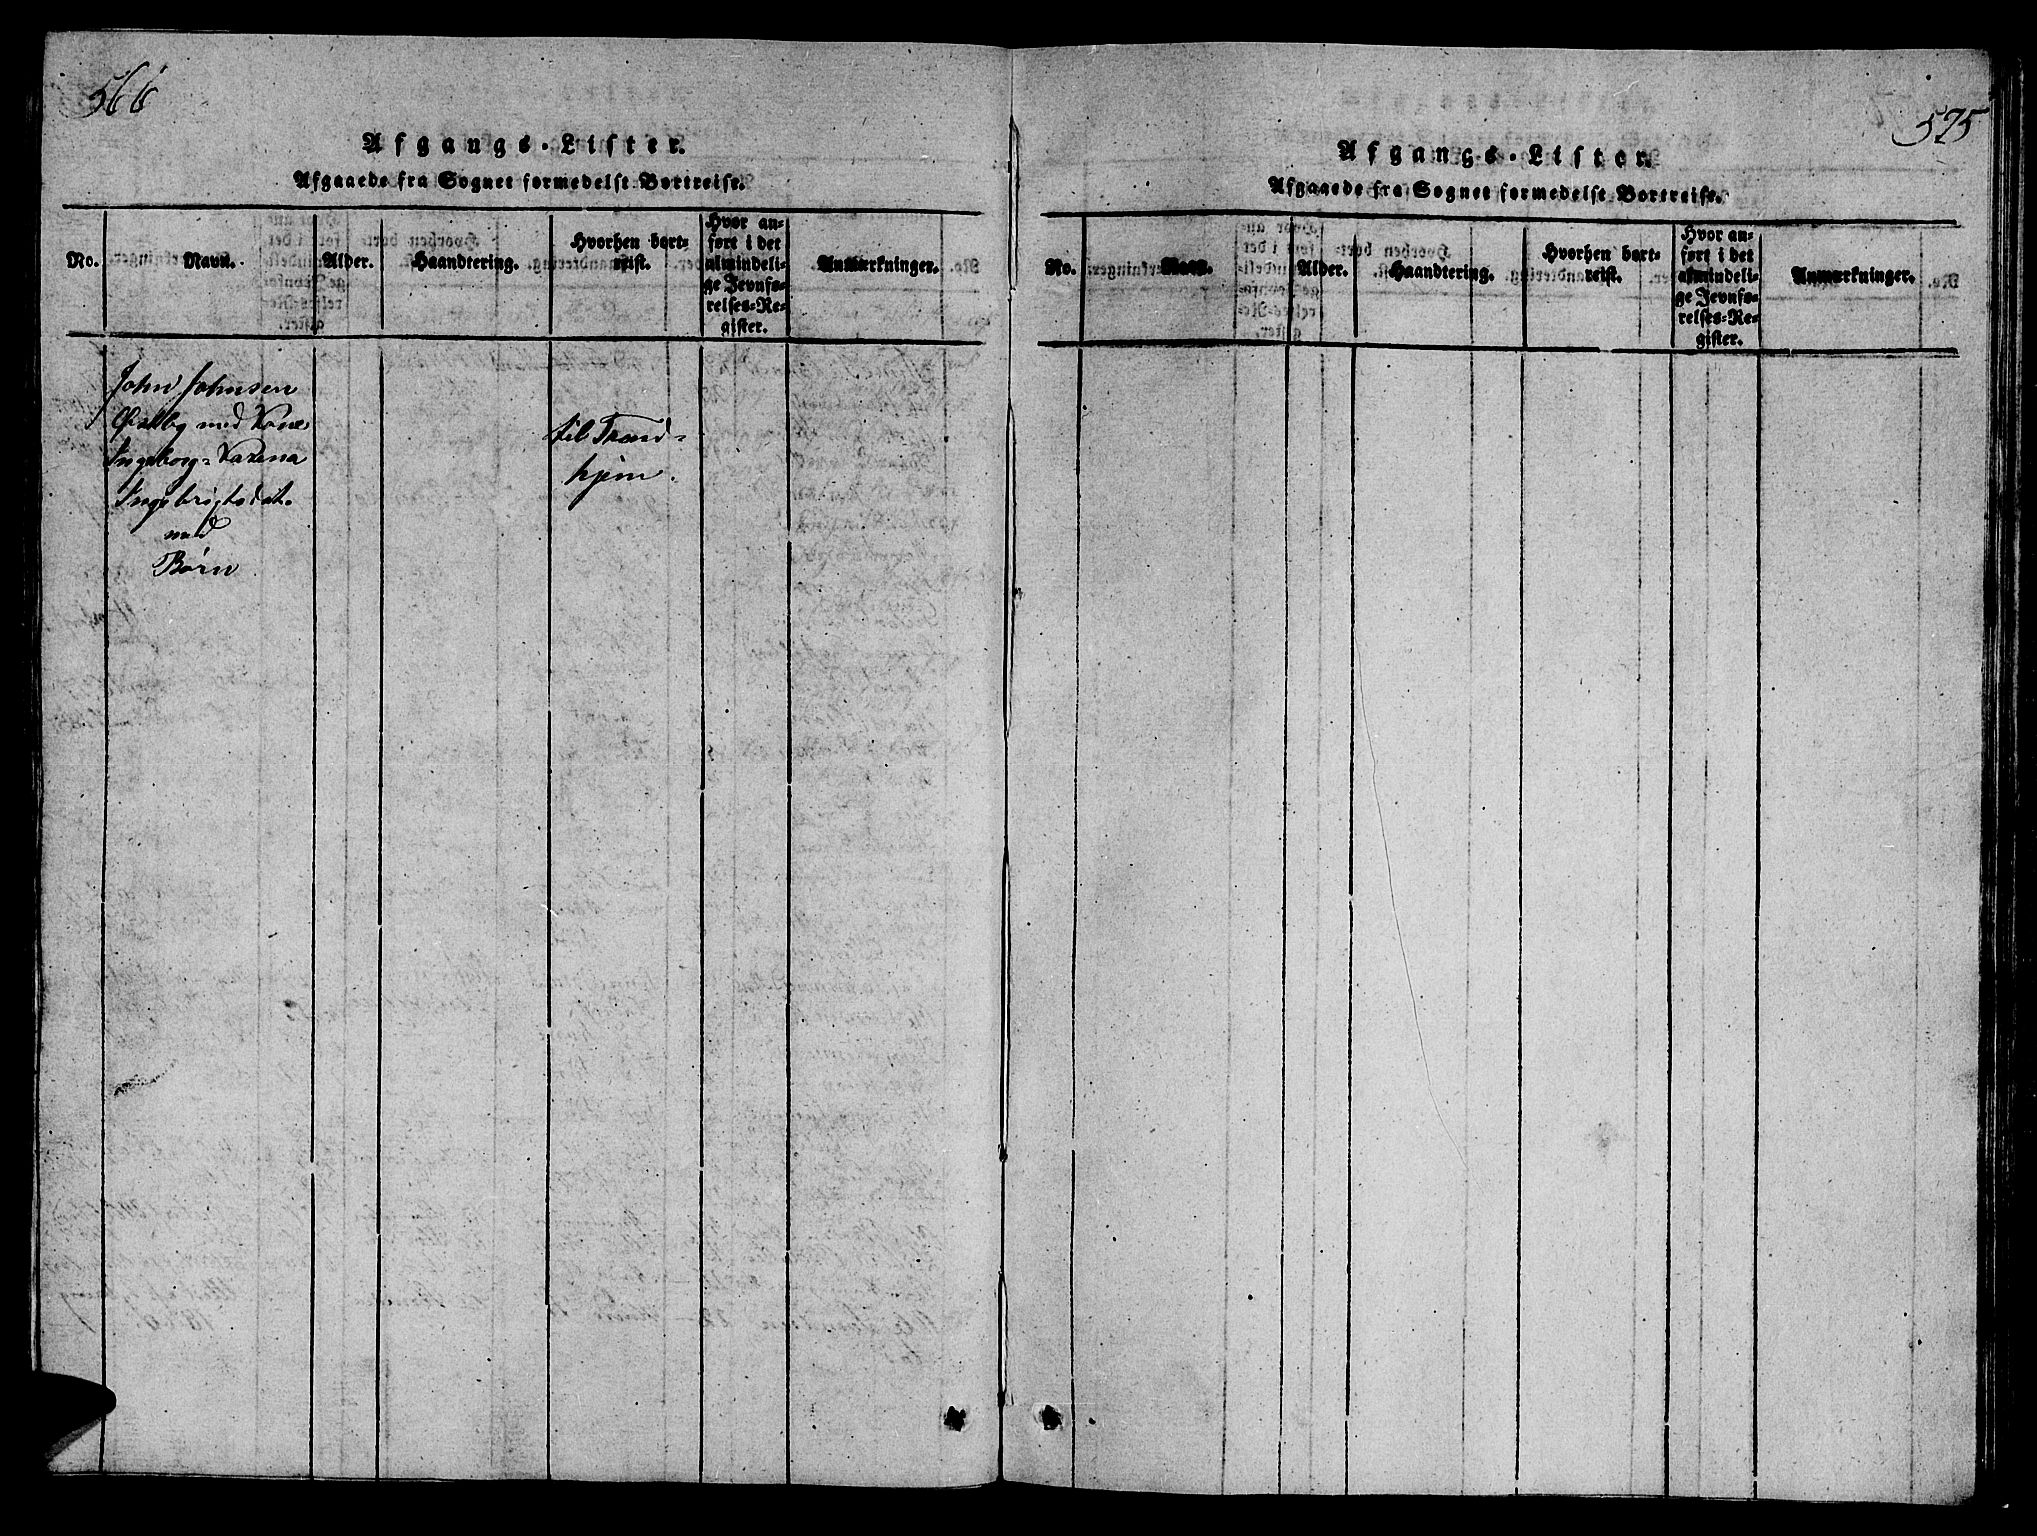 566
Afgangs-Lister.
Afgaaede fra Sognet formedelst Bortreise.
No.
Navn.
Alder.
Haandtering.
Hvorhen bort-
reist.
Hvor an-
ført i det
almindeli-
ge Jevnfø-
relses-Re-
gister.
Anmærkninger.
John Johnsen
Østby med Kone
Ingeborg-Karena
Ingebrigtsdat.
med
Børn
til Trond-
hjem.
575
Afgangs-Lister.
Afgaaede fra Sognet formedelst Bortreise.
No.
Navn.
Alder.
Haandtering.
Hvorhen bort-
reist.
Hvor an-
ført i det
almindeli-
ge Jevnfø-
relses-Re-
gister.
Anmærkninger.